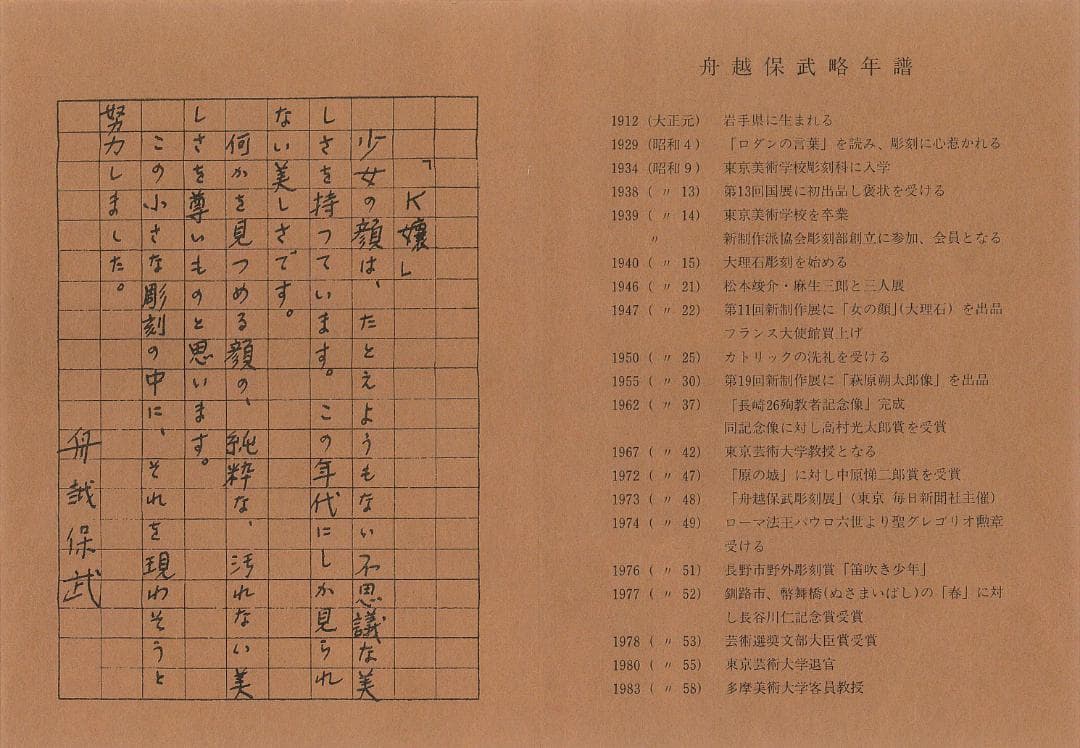 「K嬢」
少女の顔は、たとえようもない不思議な美
しさを持っています。この年代にしか見られ
ない美しさです。
何かを見つめる顔の、純粋な、汚れない美
しさを尊いものと思います。
この小さな彫刻の中に、それを現わそうと
努力しました。
舟越保武
舟越保武略年譜
1912 (大正元) 岩手県に生まれる
1929 (昭和4) 「ロダンの言葉」を読み、彫刻に心惹かれる
1934 (昭和9) 東京美術学校彫刻科に入学
1938 (〃 13) 第13回国展に初出品し褒状を受ける
1939 (〃 14) 東京美術学校を卒業
〃 新制作派協会彫刻部創立に参加、会員となる
1940 (〃 15) 大理石彫刻を始める
1946 (〃 21) 松本竣介・麻生三郎と三人展
1947 (〃 22) 第11回新制作展に「女の顔」(大理石) を出品
フランス大使館買上げ
1950 (〃 25) カトリックの洗礼を受ける
1955 (〃 30) 第19回新制作展に「萩原朔太郎像」を出品
1962 (〃 37) 「長崎26殉教者記念像」完成
同記念像に対し高村光太郎賞を受賞
1967 (〃 42) 東京芸術大学教授となる
1972 (〃 47) 「原の城」に対し中原悌二郎賞を受賞
1973 (〃 48) 「舟越保武彫刻展」(東京 毎日新聞社主催)
1974 (〃 49) ローマ法王パウロ六世より聖グレゴリオ勲章
受ける
1976 (〃 51) 長野市野外彫刻賞「笛吹き少年」
1977 (〃 52) 釧路市、幣舞橋(ぬさまいばし)の「春」に対
し長谷川仁記念賞受賞
1978 (〃 53) 芸術選奨文部大臣賞受賞
1980 (〃 55) 東京芸術大学退官
1983 (〃 58) 多摩美術大学客員教授